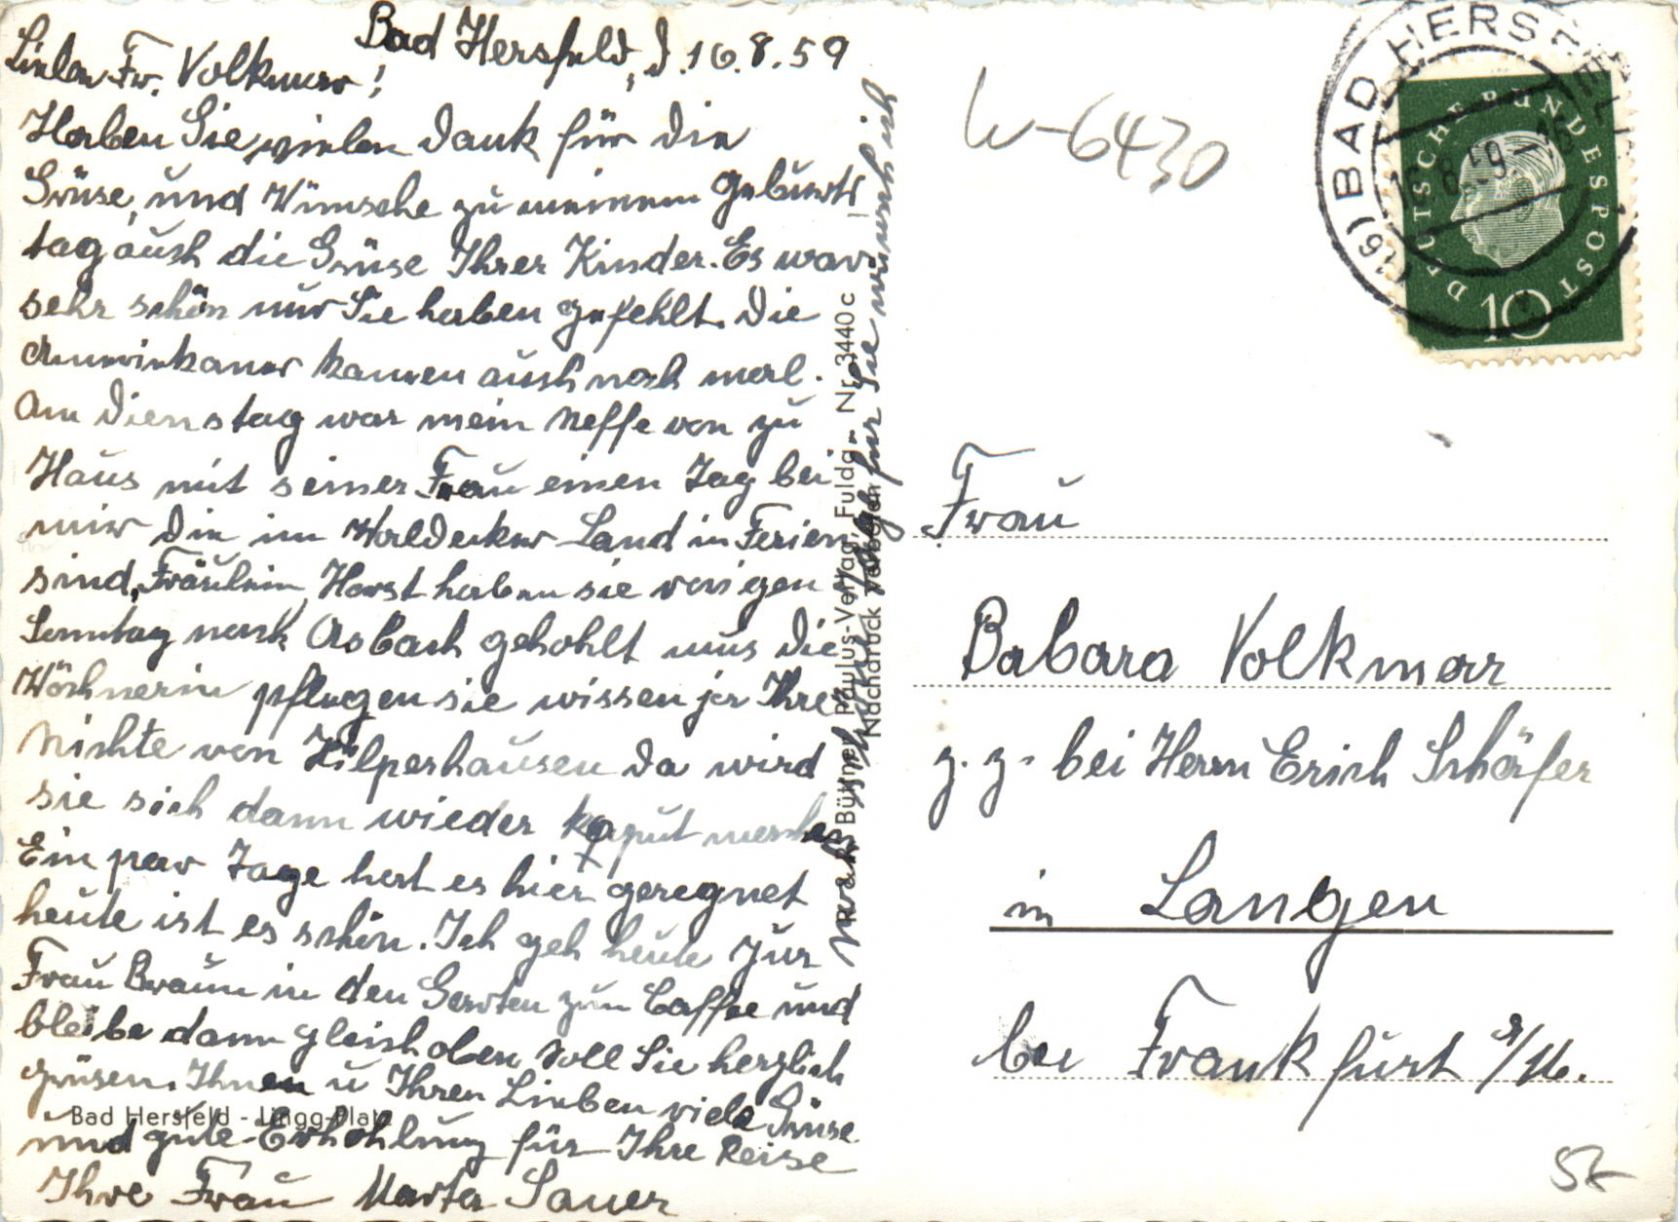 Bad Hersfeld, d. 16.8.59
Lieben Fr. Volkmar!
Haben Sie vielen Dank für die
Grüse, und Wünsche zu meinem Geburts
tag auch die Grüse Ihrer Kinder. Es war
sehr schön nur Sie haben gefehlt. Die
Amerikaner kamen auch noch mal.
Am Dienstag war mein Neffe von zu
Haus mit seiner Frau einen Tag bei
mir die im Waldecker Land in Ferien
sind, Fräulein Horst haben sie vorigen
Sonntag nach Asbach gehohlt mus die
Wöchnerin pflegen sie wissen ja Ihre
Nichte von Hilperhausen da wird
sie sich dann wieder kaput machen
Ein paar Tage hat es hier geregnet
heute ist es schön. Ich geh heute zur
Frau Braun in den Garten zum Caffee und
bleibe dann gleich oben soll Sie herzlich
grüsen. Ihnen u Ihren Lieben viele Grüse
und gute Erhohlung für Ihre Reise
Ihre Frau Marta Sauer
für Sie wünsch ich
Bad Hersfeld - Lingg-Platz
Büttner, Paulus-Verlag, Fulda - Nr. 3440 c
Nachdruck verboten
W-6430
(16) BAD HERSFELD
16.8.59.-16
DEUTSCHE BUNDESPOST
10
Frau
Babara Volkmar
z. z. bei Herrn Erich Schäfer
in Langen
bei Frankfurt a/M.